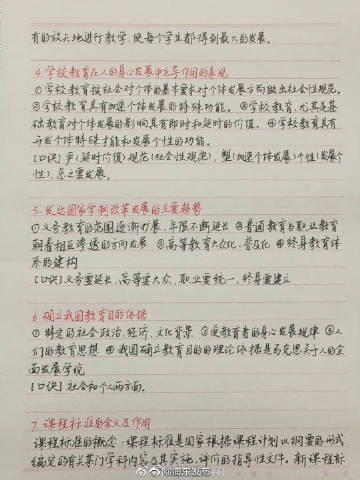 有的放矢地进行教学,使每个学生都得到最大的发展。
4.学校教育在人的身心发展中主导作用的表现
①学校教育按社会对个体的基本要求对个体发展方向做出社会性规范。
②学校教育具有加速个体发展的特殊功能。③学校教育,尤其是基
础教育对个体发展的影响具有即时和延时的价值。④学校教育具有
开发个体特殊才能和发展个性的功能。
[口诀](延时价值)规范(社会性规范),(加速个体发展)个性(发展个
性),总之要发展。
5.发达国家学制改革发展的主要趋势
①义务教育的范围逐渐扩展,年限不断延长 ②普通教育与职业教育
朝着相互渗透的方向发展 ③高等教育大众化、普及化 ④终身教育体
系的建构
[口诀]义务要延长,高等要大众,职业要统一,终身要建立
6.确立我国教育目的依据
①特定的社会政治、经济、文化背景 ②受教育者的身心发展规律 ③人
们的教育思想 ④我国确立教育目的的理论依据是马克思关于人的全
面发展学说
[口诀]社会和个人两方面。
7.课程标准的含义及作用
课程标准的概念:课程标准是国家根据课程计划以纲要的形式
编定的有关某门学科内容及其实施、评价的指导性文件。新课标
@浦东发布